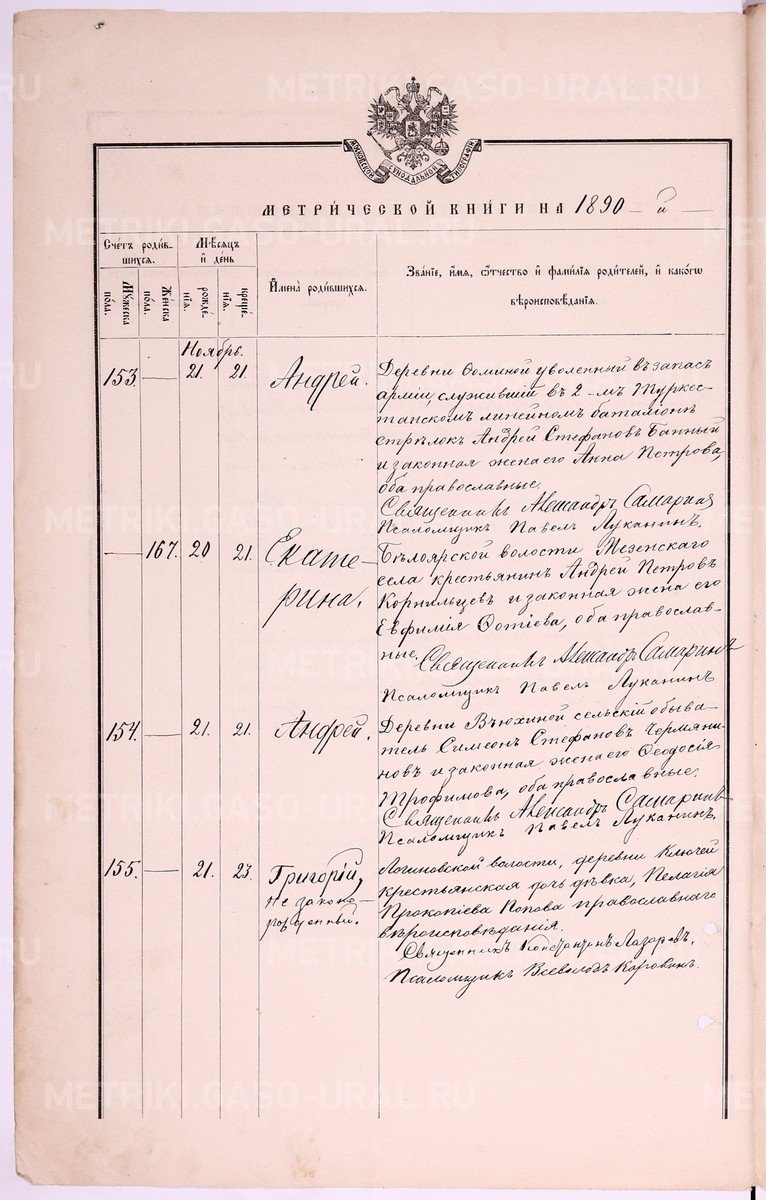 METRIKI.GASO-URAL.RU
МОСКОВСКОЙ СѴНОДАЛЬНОЙ ТИПОГРАФІИ
МЕТРИ́ЧЕСКОЙ КНИ́ГИ НА 1890-й
Сче́тъ роди́вшихсѧ.
Мꙋ́жеска пола.
Же́нска пола.
Мѣ́сѧцъ и де́нь
рожде́нїѧ.
креще́нїѧ.
И҆мена̀ роди́вшихсѧ.
Зва́нїе, и҆́мѧ, ѻ҆́тчество и҆ фами́лїѧ роди́телей, и҆ како́гѡ
вѣроисповѣ́данїѧ.
Ноябрь.
153. — 21. 21. Андрей.
Деревни Ѳоминой уволенный въ запасъ
арміи, служившій въ 2-мъ Турке-
станскомъ линейномъ баталіонѣ
стрѣлокъ Андрей Стефановъ Банный
и законная жена его Анна Петрова,
оба православные.
Священникъ Александръ Самаринъ
Псаломщикъ Павелъ Луканинъ.
— 167. 20 21. Екате-
рина.
Бѣлоярской волости Мезенскаго
села крестьянинъ Андрей Петровъ
Корнильцевъ и законная жена его
Евфимія Ѳотіева, оба православ-
ные.
Священникъ Александръ Самаринъ
Псаломщикъ Павелъ Луканинъ
154. — 21. 21. Андрей.
Деревни Вьюхиной сельскій обыва-
тель Симеонъ Стефановъ Чермяни-
новъ и законная жена его Ѳеодосія
Трофимова, оба православные.
Священникъ Александръ Самаринъ
Псаломщикъ Павелъ Луканинъ.
155. — 21. 23. Григорій,
не законо-
рожденный.
Логиновской волости, деревни Ключей
крестьянская дочь дѣвка, Пелагія
Прокопіева Попова православнаго
вѣроисповѣданія.
Священникъ Константинъ Лазаревъ.
Псаломщикъ Всеволодъ Коровинъ.